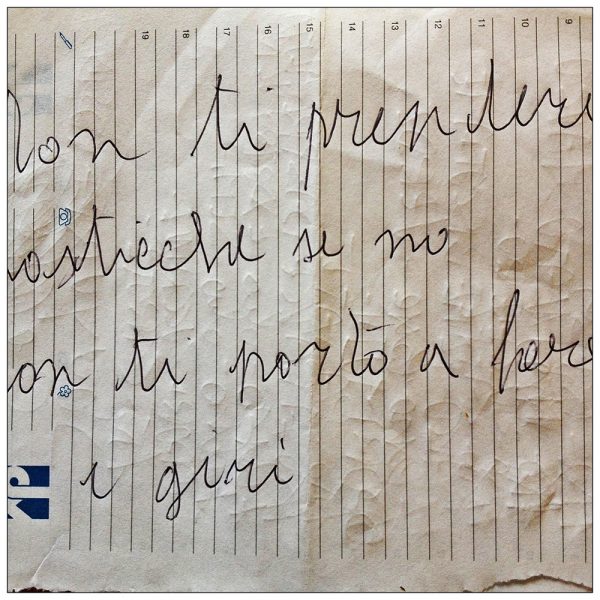 19 18 17 16 15 14 13 12 11 10 9
Non ti prendere
asticche se no
on ti porto a fare
i giri